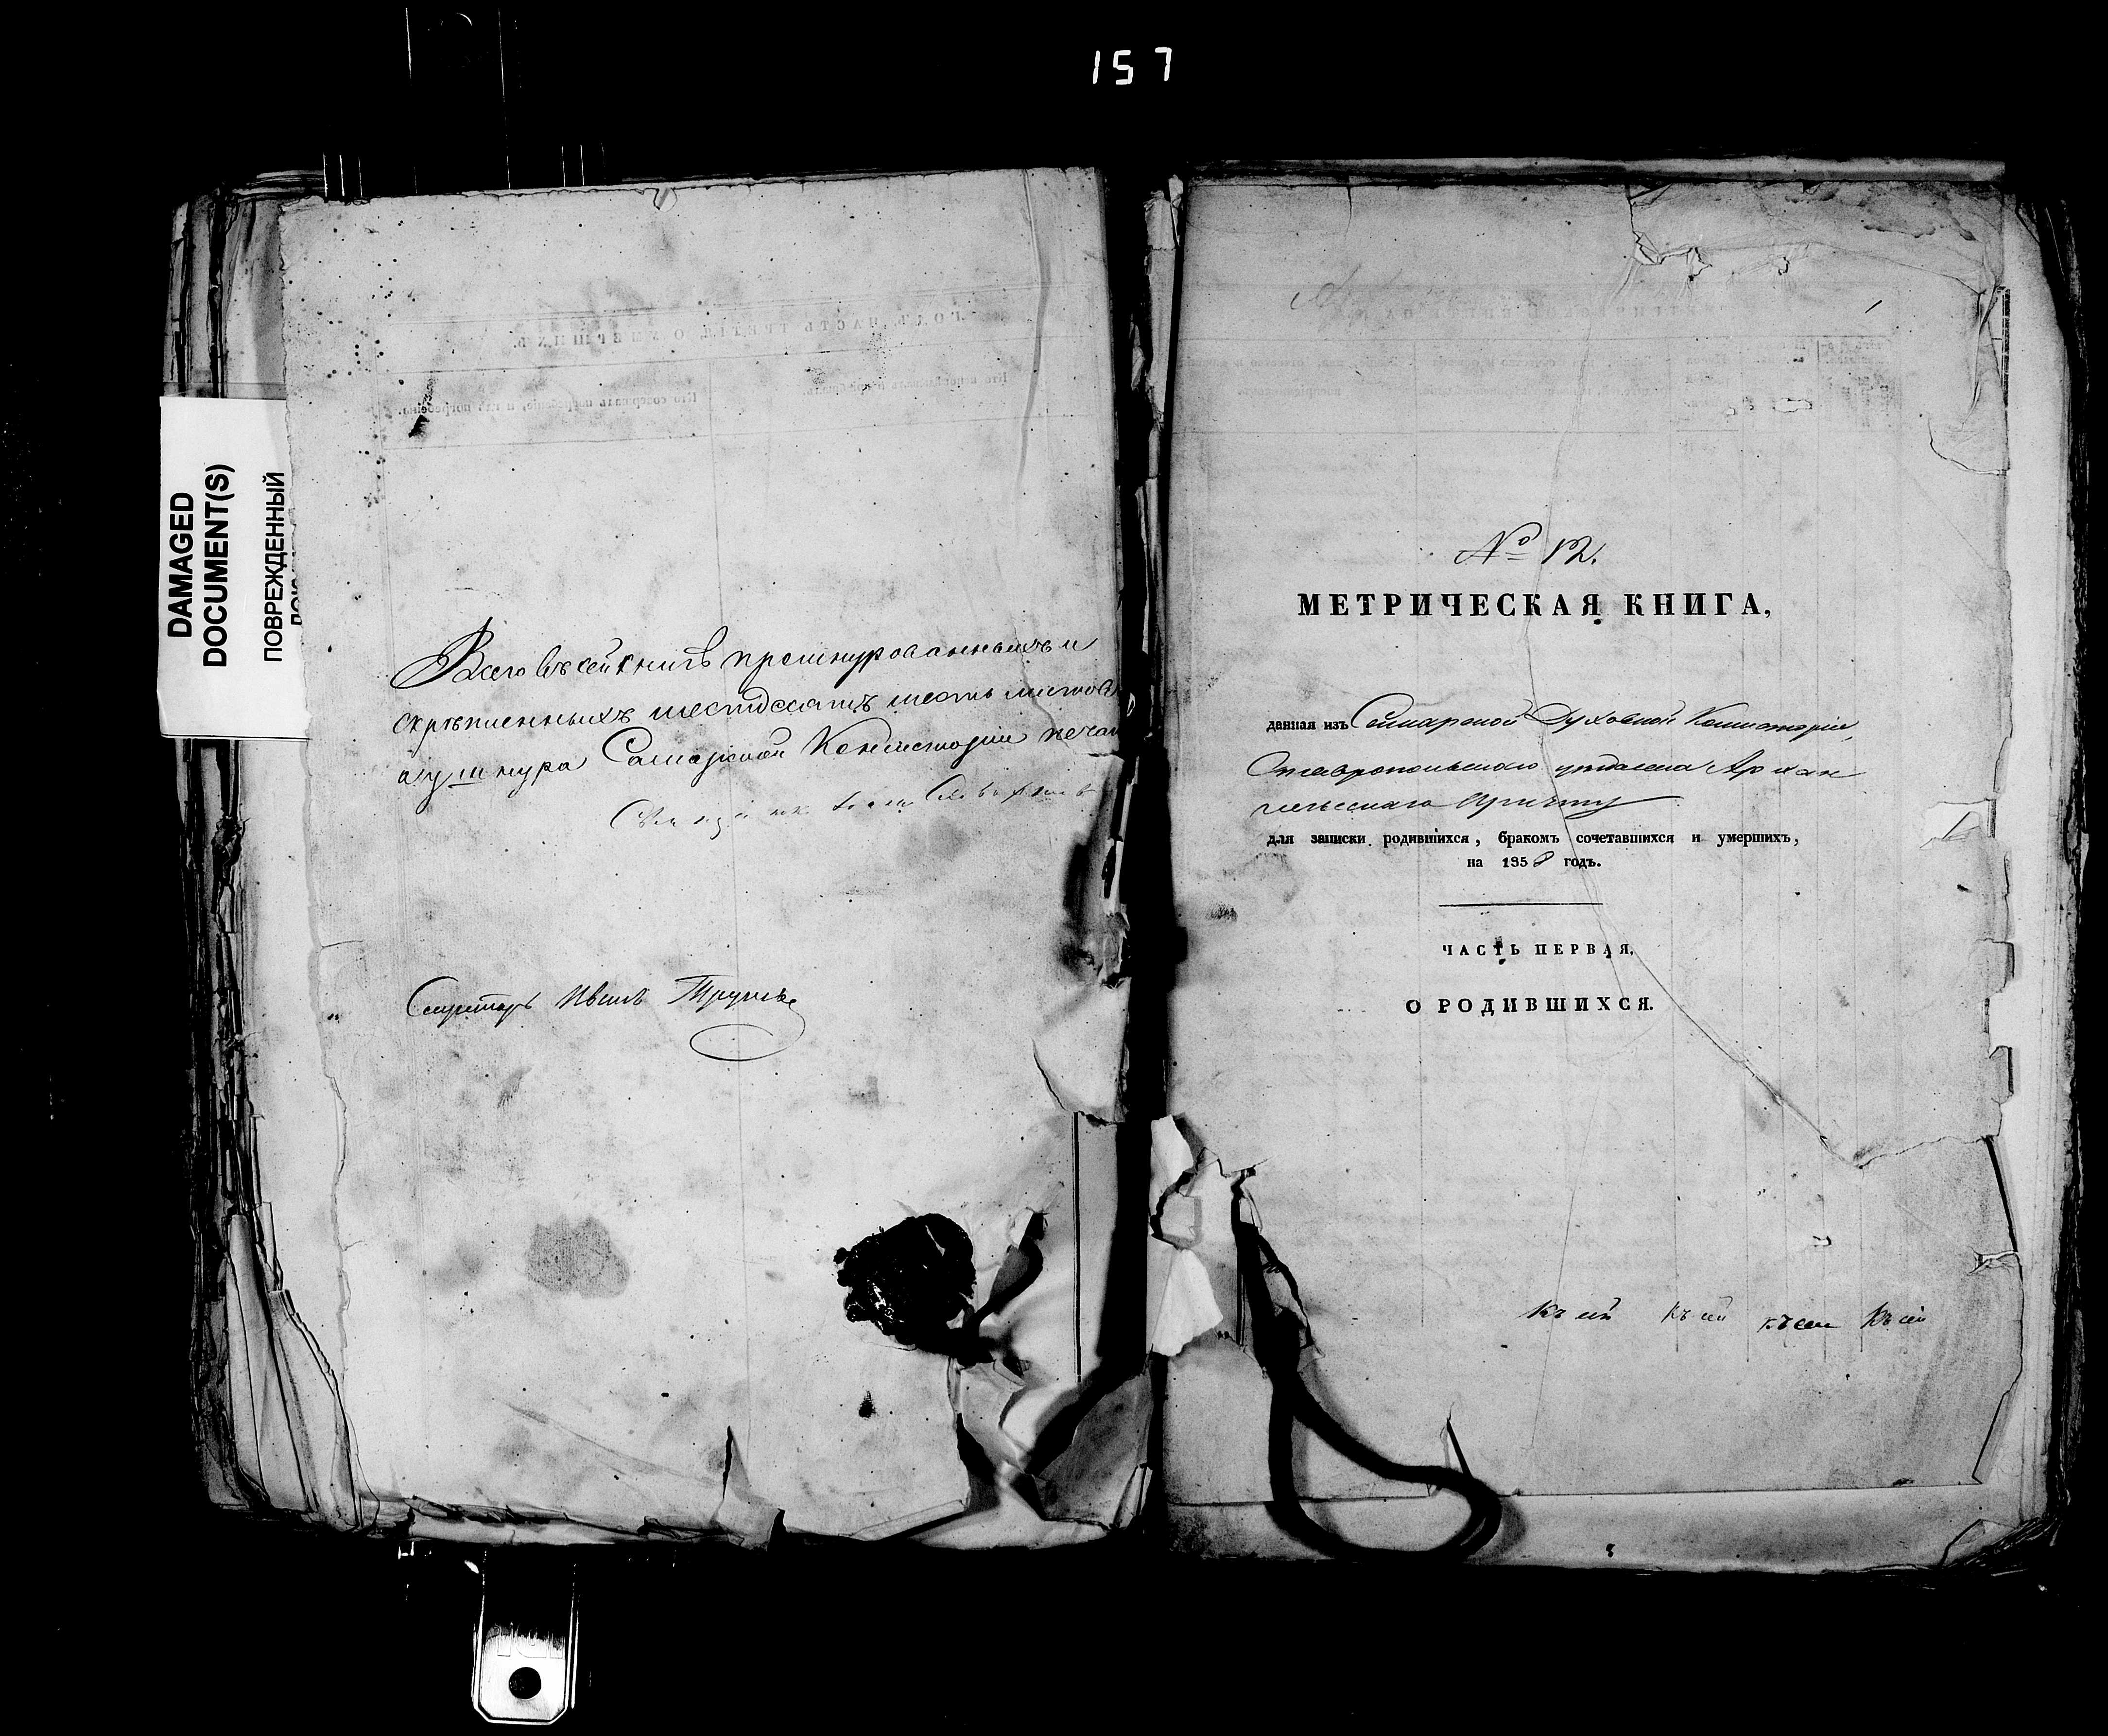 157
DAMAGED
DOCUMENT(S)
ПОВРЕЖДЕННЫЙ
Всего въ сей книгѣ прошнурованныхъ и
скрѣпленныхъ шестдесятъ шесть листовъ
а у шнура Самарской Консисторіи печать
Секретарь Иванъ
№ 12.
МЕТРИЧЕСКАЯ КНИГА,
данная изъ Самарской Духовной Консисторіи,
Ставропольскаго уѣзда села Архан
гельскаго Причту
для записки родившихся, бракомъ сочетавшихся и умершихъ,
на 1858 годъ.
ЧАСТЬ ПЕРВАЯ,
О РОДИВШИХСЯ.
Къ сей Къ сей къ сей Къ сей